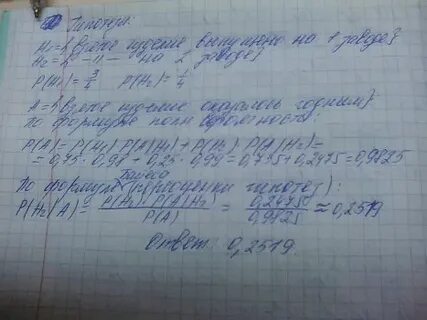 Гипотезы.
H₁ = {Взятое изделие выпущено на 1 заводе}
H₂ = { — 11 — на 2 заводе}
P(H₁) = 3/4 P(H₂) = 1/4
A = {Взятое изделие оказалось годным}
По формуле полн вероятности:
P(A) = P(H₁) P(A|H₁) + P(H₂) · P(A|H₂) =
= 0,75 · 0,98 + 0,25 · 0,99 = 0,735 + 0,2475 = 0,9825
Байеса
По формуле (переоценки гипотез):
P(H₂|A) = P(H₂) · P(A|H₂) / P(A) = 0,2475 / 0,9825 ≈ 0,2519
Ответ: 0,2519.